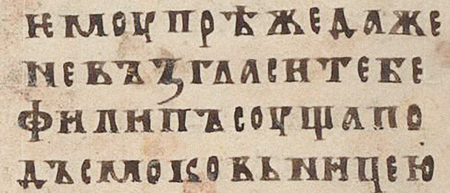 ѥмоупрѣжедаже
невъꙁгласитебе
филипъсоущапо
дъсмоковьницею